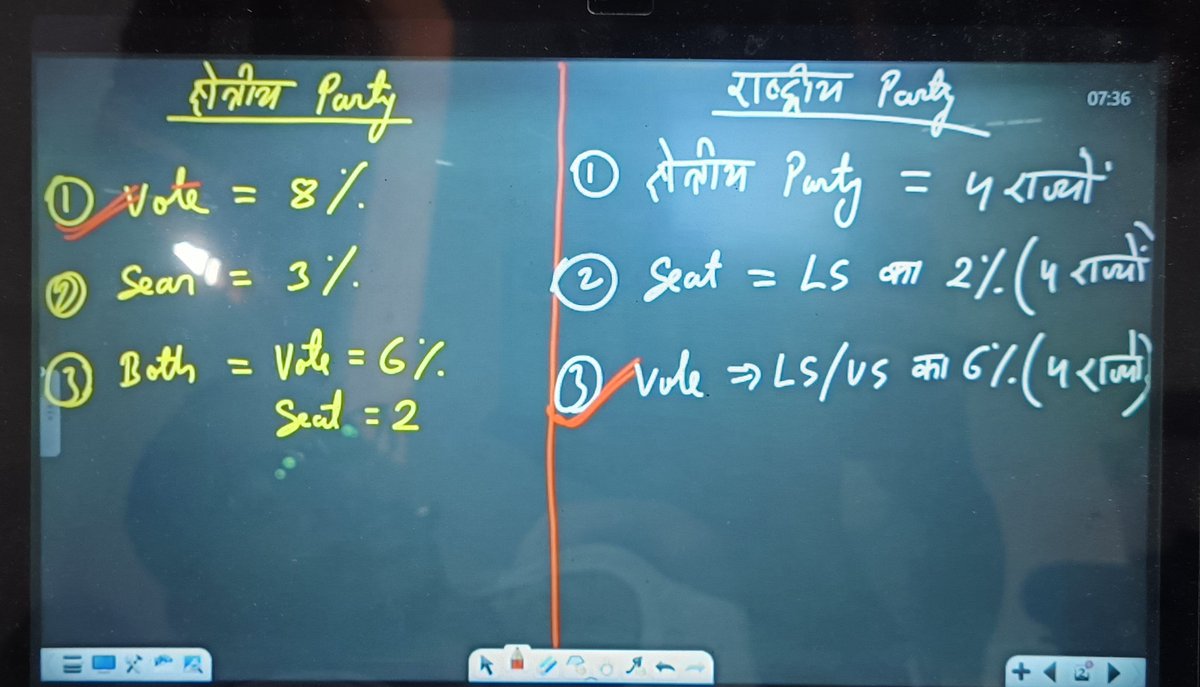 क्षेत्रीय Party
① Vote = 8%.
② Sean = 3%.
③ Both = Vote = 6%.
Seat = 2
राष्ट्रीय Party
07:36
① क्षेत्रीय Party = 4 राज्यों
② Seat = LS का 2%. (4 राज्यों)
③ Vote ⇒ LS/VS का 6%. (4 राज्यों)